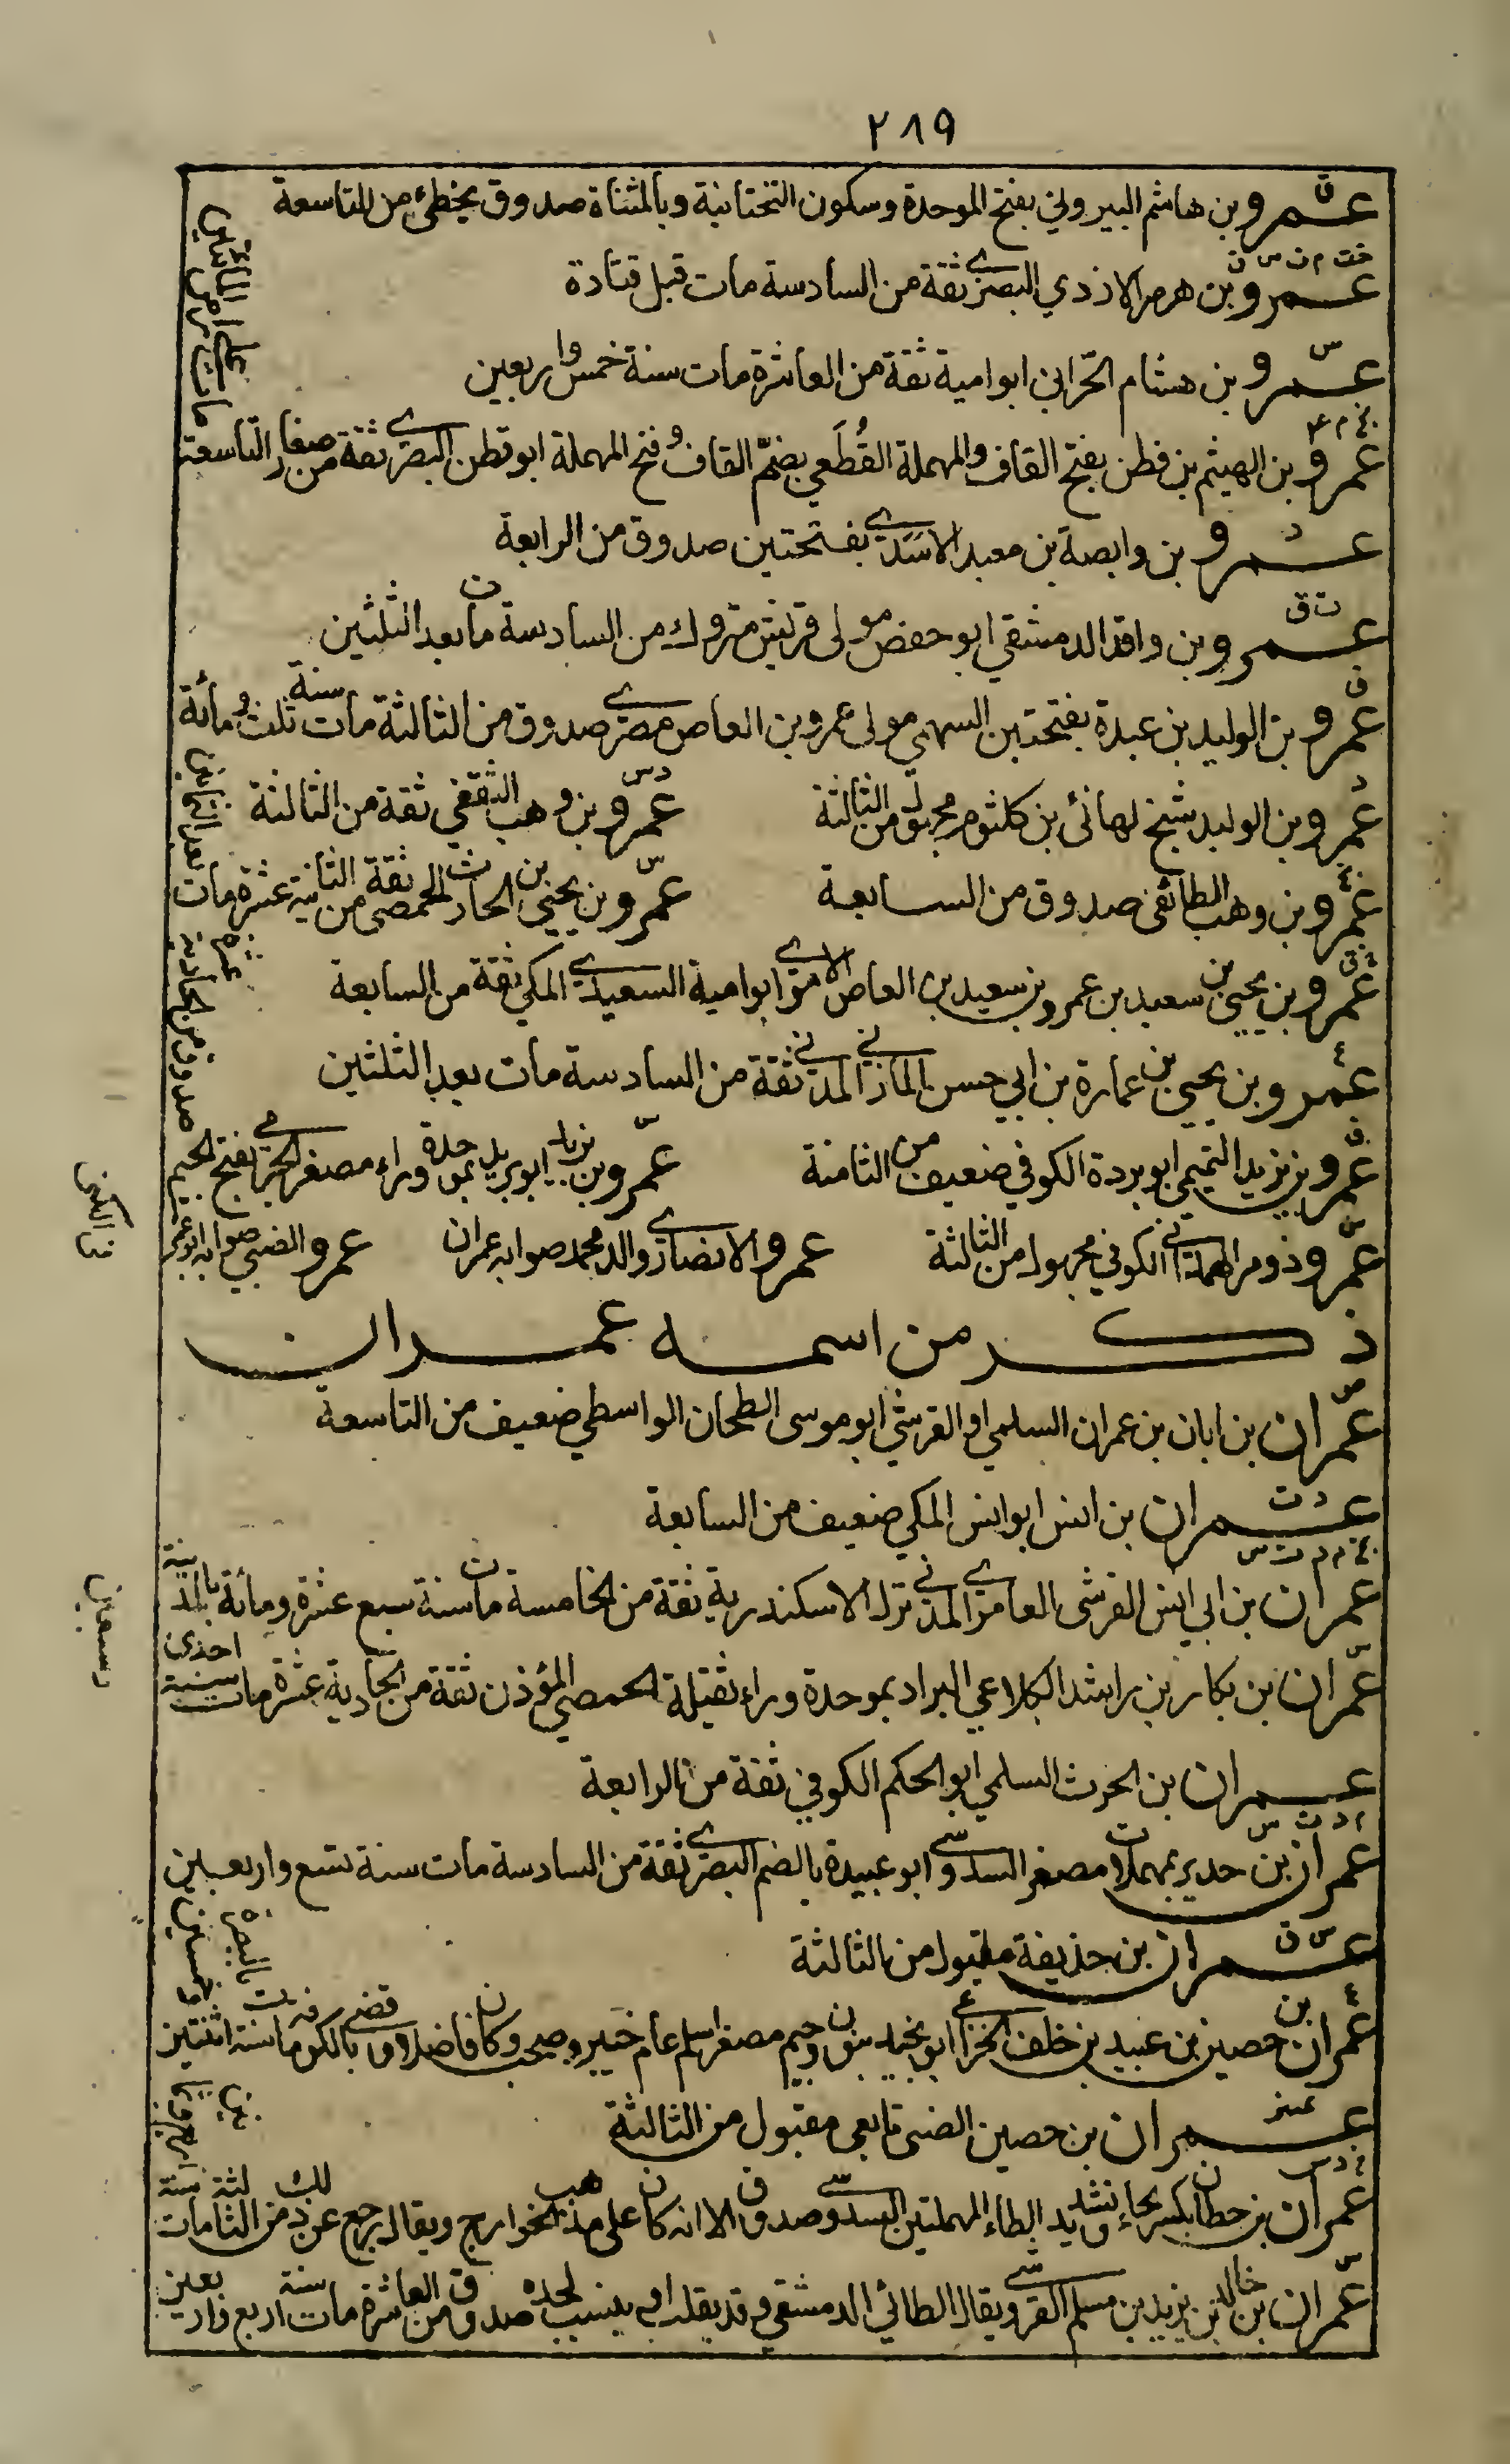 ٢٨٩
ق
عمرو بن هاشم البيروتي بفتح الموحدة وسكون التختانية وبالمثناة صدوق يخطئ من التاسعة
خت م ت س ق
عمرو بن هرم الازدي البصري ثقة من السادسة مات قبل قتادة
س
عمرو بن هشام الحراني ابو امية ثقة من العاشرة مات سنة خمس واربعين
عمرو بن الهيثم بن قطن بفتح القاف والمهملة القُطَعي بضمّ القاف وفتح المهملة ابو قطن البصري ثقة من صغار التاسعة
مات على راس المائتين
د
عمرو بن وابصة بن معبد الاسَدي بفتحتين صدوق من الرابعة
ت ق
عمرو بن واقد الدمشقي ابو حفص مولى قريش متروك من السادسة مات بعد الثلثين
ق
عمرو بن الوليد بن عبدة بفتحتين السهمي مولى عمرو بن العاص مصري صدوق من الثالثة مات سنة ثلث ومائة
د
عمرو بن الوليد شيخ لهانئ بن كلثوم مجهول من الثالثة
د س
عمرو بن وهب الثقفي ثقة من الثالثة
عمرو بن وهب الطائفي صدوق من السابعة
س
عمرو بن يحيى بن الحارث الحمصي ثقة من الثانية عشرة مات
بعد الثمانين
خ ق
عمرو بن يحيى بن سعيد بن عمرو بن سعيد بن العاص الاموي ابو امية السعيدي المكي ثقة من السابعة
ع
عمرو بن يحيى بن عمارة بن ابي حسن المازني المدني ثقة من السادسة مات بعد الثلثين
ق
عمرو بن يزيد التميمي ابو بردة الكوفي ضعيف من الثامنة
س
عمرو بن يزيد ابو بريد بموحدة وراء مصغر الجرمي بفتح الجيم
صدوق من الحادية عشرة
س
عمرو ذو مر الهمداني الكوفي مجهول من الثالثة
عمرو الانصاري والد محمد صوابه عمران
عمرو الضبي صوابه ابو عمر
ذكر من اسمه عمران
س
عمران بن ابان بن عمران السلمي او القرشي ابو موسى الطحان الواسطي ضعيف من التاسعة
د ت
عمران بن انس ابو انس المكي ضعيف من السابعة
بخ م د ت س
عمران بن ابي انس القرشي العامري المدني نزل الاسكندرية ثقة من الخامسة مات سنة سبع عشرة ومائة بالمدينة
س
عمران بن بكار بن راشد الكلاعي البراد بموحدة وراء ثقيلة الحمصي المؤذن ثقة من الحادية عشرة مات سنة احدى
وسبعين
عمران بن الحرث السلمي ابو الحكم الكوفي ثقة من الرابعة
م د ت س
عمران بن حدير بمهملات مصغر السدوسي ابو عبيدة بالضم البصري ثقة من السادسة مات سنة تسع واربعين
س ق
عمران بن حذيفة مقبول من الثالثة
ع
عمران بن حصين بن عبيد بن خلف الخزاعي ابو نجيد بنون وجيم مصغر اسلم عام خيبر وصحب وكان فاضلا وقضى بالكوفة مات سنة اثنتين
وخمسين بالبصرة
تمييز
عمران بن حصين الضبي تابعي مقبول من الثالثة
خ د س
عمران بن حطان بكسر الحاء وتشديد الطاء المهملتين السدوسي صدوق الا انه كان على مذهب الخوارج ويقال رجع عن ذلك من الثالثة مات سنة
اربع وثمانين
س
عمران بن خالد بن يزيد بن مسلم القرشي ويقال الطائي الدمشقي وقد يقلب او ينسب لجده صدوق من العاشرة مات سنة اربع واربعين